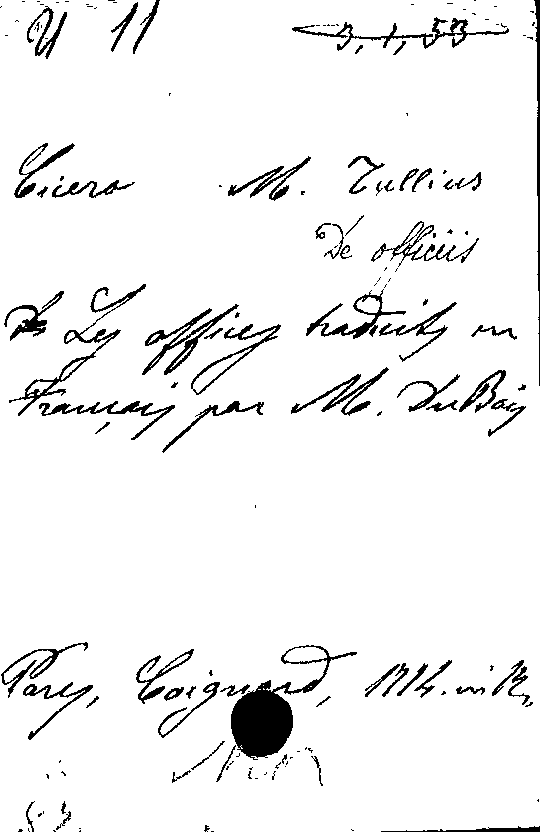 U 11 3,1,53
Cicero M. Tullius
De officiis
Les offices traduits en
Français par M. DuBois
Paris, Coignard, 1714. in 12,